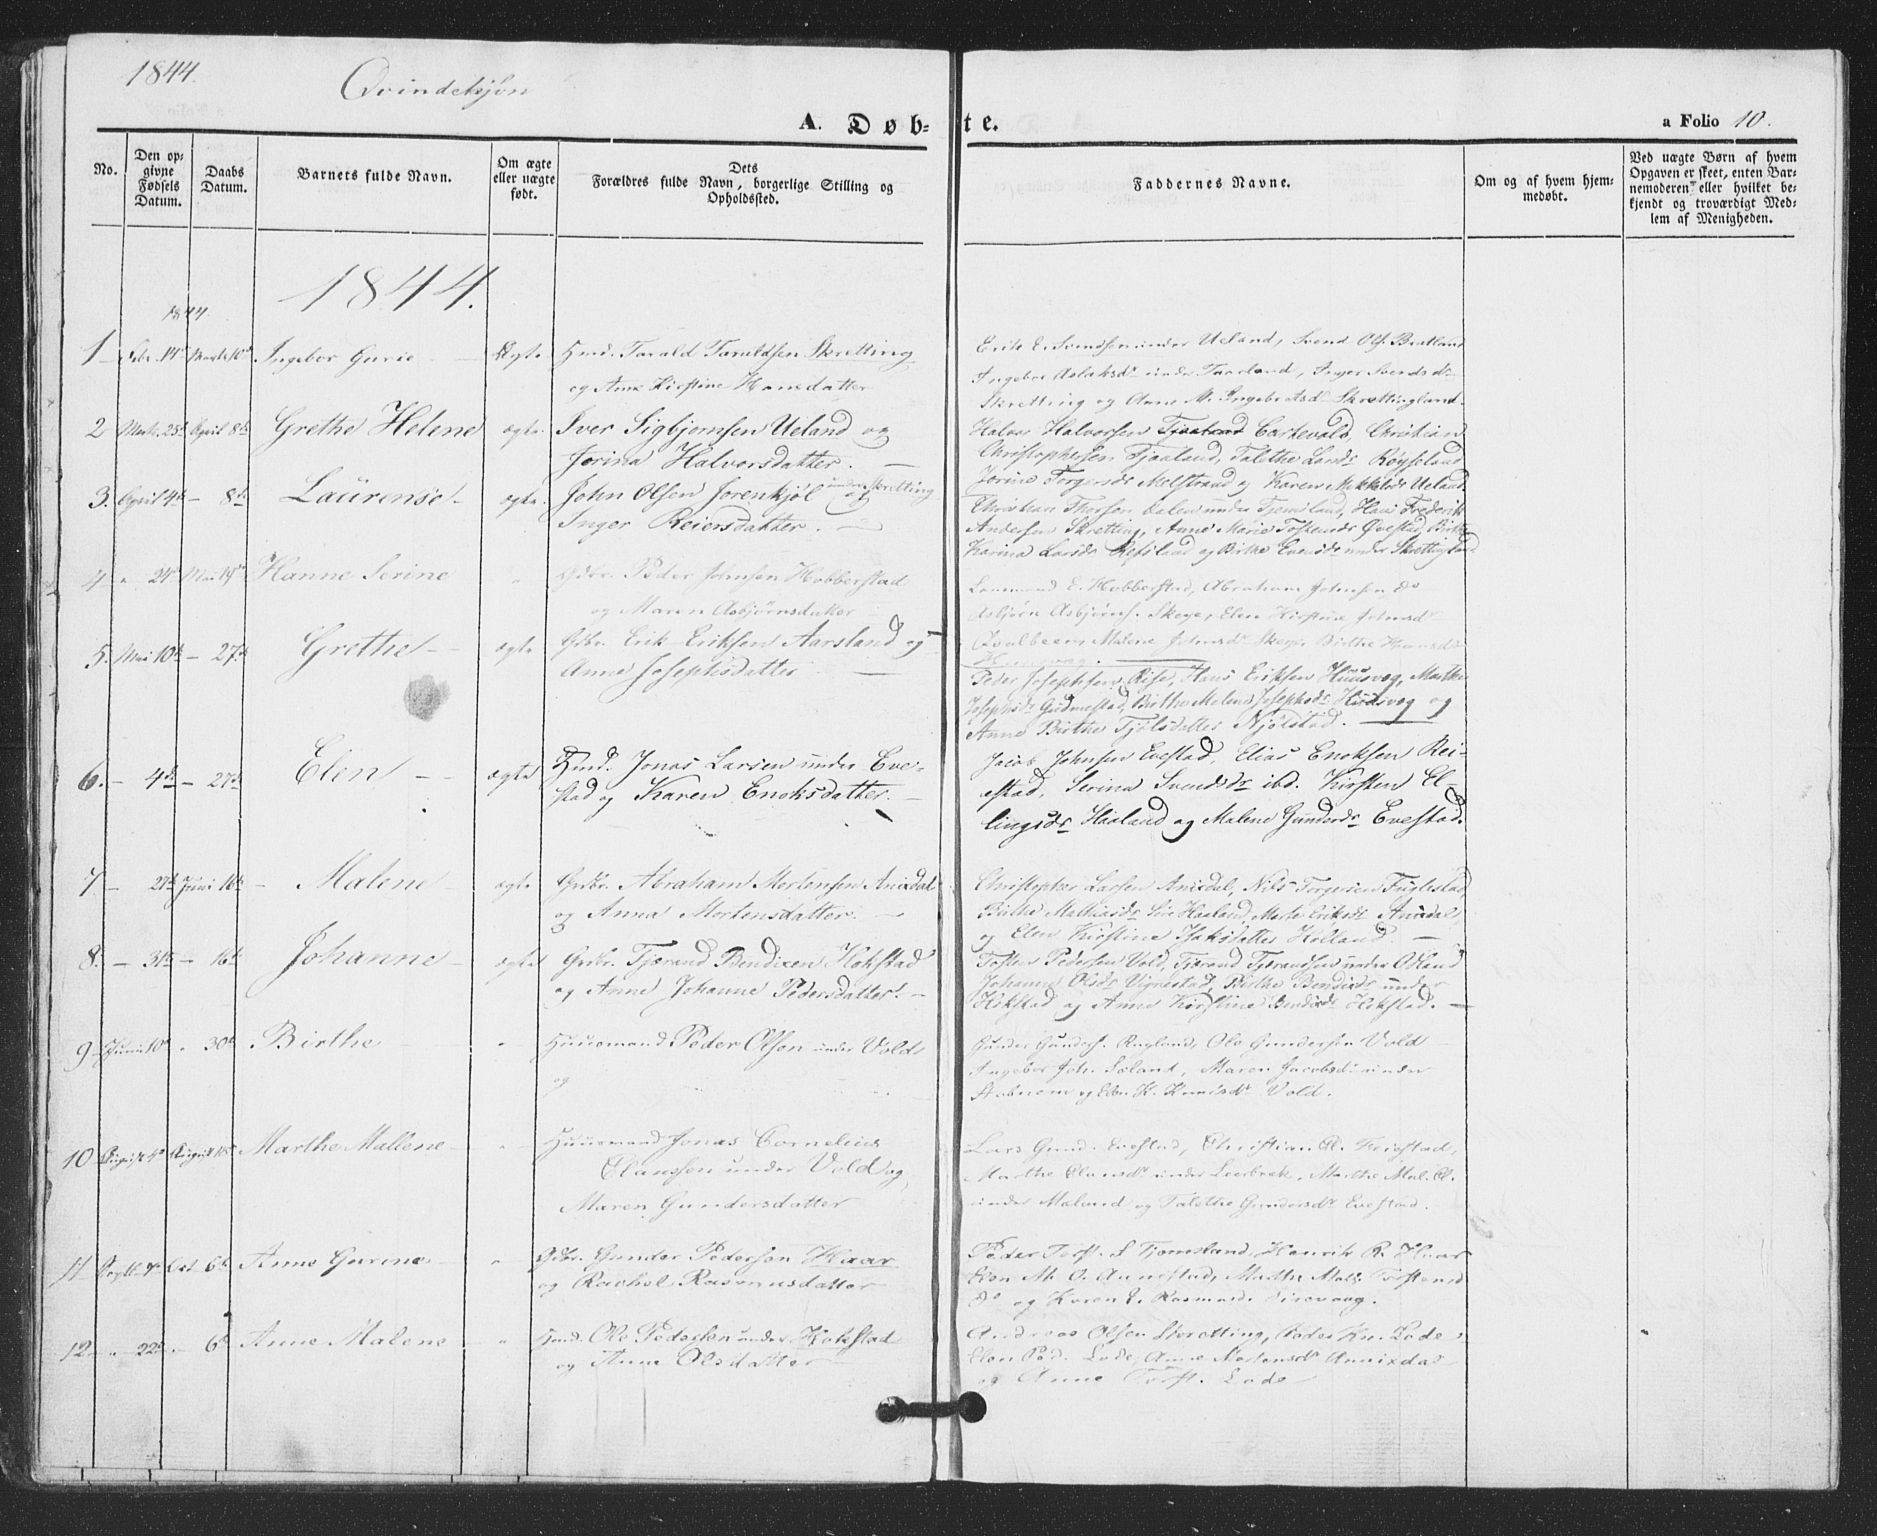 1844.
Qvindekjøn
A. Døbte.
a Folio 10.
No.
Den op-
givne
Fødsels
Datum.
Daabs
Datum.
Barnets fulde Navn.
Om ægte
eller uægte
født.
Dets
Forældres fulde Navn, borgerlige Stilling og
Opholdssted.
Faddernes Navne.
Om og af hvem hjem-
medøbt.
Ved uægte Børn af hvem
Opgaven er skeet, enten Bar-
nemoderen eller hvilket be-
kjendt og troværdigt Med-
lem af Menigheden.
1844.
1844.
1 Febr. 14de Marts 10de Ingebor Gurie Ægte Hmd. Tarald Taraldsen Skretting
og Ane Kirstine Hansdatter
Erik E. Svendsen under Ueland, Svend Ols. Bratland
Ingebor Aslaksdr under Taarland, Inger Svendsdr
Skretting og Anne M. Ingebretsd Skrettingland.
2 Marts 28de April 8de Grethe Helene ægte Iver Sigbjørnsen Ueland og
Jorina Halvorsdatter.
Halvor Halvorsen Tjaaland Cartevold, Christian
Christophersen Tjaaland, Talethe Larsdr Røyseland
Jorine Torgersdr Motstrand og Karen Mikkelsdr Ueland
3. April 4de - 8de Laurense ægte John Olsen Sorenkjøl under Skretting
og
Inger Reiersdatter.
Christian Thorsen Selen under Tjemsland, Hans Frederik
Andersen Skretting, Anne Marie Tostensdr Øvestad, Birthe
Karina Larsdr Refsland og Birthe Evensdr under Skrettingland
4 " 24de Mai 19de Hanne Serine " Gdbr. Peder Johnsen Hobberstad
og Maren Asbjørnsdatter
E. Hobberstad, Abraham Johnsen do
Asbjørn Asbjørns. Skeye, Elen Kirstine Johnsdr
Qvalbeen, Malene Johnsdr Skeye, Birthe Hansdr
5. Mai 10de - 27de Grethe ægte Gdbr. Erik Eriksen Aarsland og
Anne Josephsdatter
Peder Josephsen Rise, Hans Eriksen Huusveg, Marthe
Josephsdr Gudmestad, Birthe Malene Josephsdr Huusveg og
Anne Birthe Tjølsdatter Njølstad.
6. - 4de - 27de Elen ægte Hmd. Jonas Larsen under Eve-
stad og Karen Enoksdatter.
Jacob Johnsen Evestad, Elias Enoksen Rei-
estad, Serina Svendsdr ibd. Kirsten El-
lingsdr Haaland og Malene Gundersdr Evestad.
7 - 27de Juni 16de Malene ægte Grdbr. Abraham Mortensen Anisdal
og Anna Mortensdatter.
Christopher Larsen Anisdal, Nils Torgersen Fuglestad
Birthe Mathiasdr Søre Haaland, Marte Eriksdr Anisdal,
og Elen Kirstine Isaksdatter Holland.
8. - 31te - 16de Johanne ægte Grdbr. Tjerand Bendixen Hokstad
og Anne Johanne Pedersdatter.
Tosten Pedersen Vold, Tjerand Tjerandsen under Odland
Johanne Olsdr Vignestad, Birthe Bendixdr under
Hokstad og Anne Kirstine Bendixdr Hokstad.
9 Juni 10de " 30te Birthe " Huusmand Peder Olsen under Vold
og
Gunder Gunders. Røgland, Ole Gundersen Vold
Ingebor Joh. Søland, Maren Jacobsdr under
og Elen K. Knudsdr Vold.
10 August 4de August 18de Marthe Mallene " Huusmand Jonas Cornelius
Clausen under Vold og
Maren Gundersdatter
Lars Gund. Evestad, Christian Cl. Frøstad,
Marthe Clausdr under Leerbrek, Marthe Mal. Cl.
under Maland og Talethe Gundersdr Evestad.
11 Septb. 7de Oct 6te Anne Gurine " Gdbr. Gunder Pedersen Haar
og Rachel Rasmusdatter
Peder Torst. S. Tjomsland, Henrik R. Haar
Elen M. O. Aunestad, Marthe Mal. Torstensd
do og Karen E. Rasmusdr Sirevaag.
12 " 22de " 6te Anne Malene " Hmd. Ole Pedersen under Hokstad
og Anne Olsdatter
Andreas Olsen Skretting, Peder Kn. Lode,
Elen Ped. Lode, Anne Mortensdr Annixdal
og Anne Torst. Lode